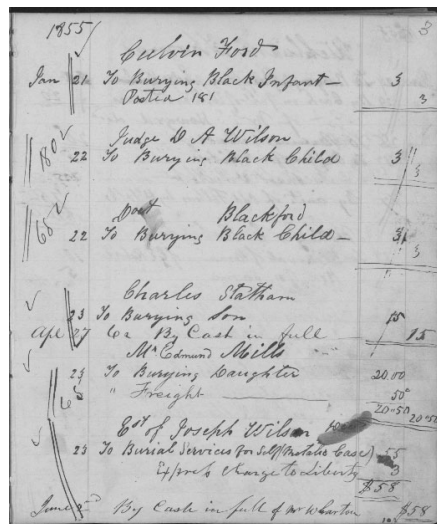 1855
3
Culvin Ford
Jan 21 To Burying Black Infant — 3
Posted 181 3
Judge D A Wilson
180 22 To Burying Black Child 3
3
Doct Blackford
65 22 To Burying Black Child — 3
3
Charles Statham
23 To Burying Son 15
Apl 27 Cr By Cash in full 15
Mr Edmund Mills
65 23 To Burying Daughter 20.00
" Freight 50
20.50 20.50
Est of Joseph Wilson
23 To Burial Services for Self (Metalic Case) 55
Express charge to Liberty 3
$58
June 2nd By Cash in full of Mr Wharton $58